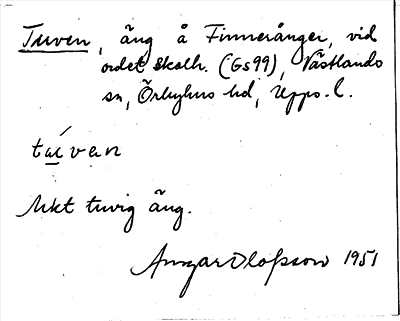 Tuven, äng å Finnerånger, vid
ordet Skolh. (Gs99), Västlands
sn, Örbyhus hd, Upps. l.
tu´van
Mkt tuvig äng.
Ansgar Olofsson 1951